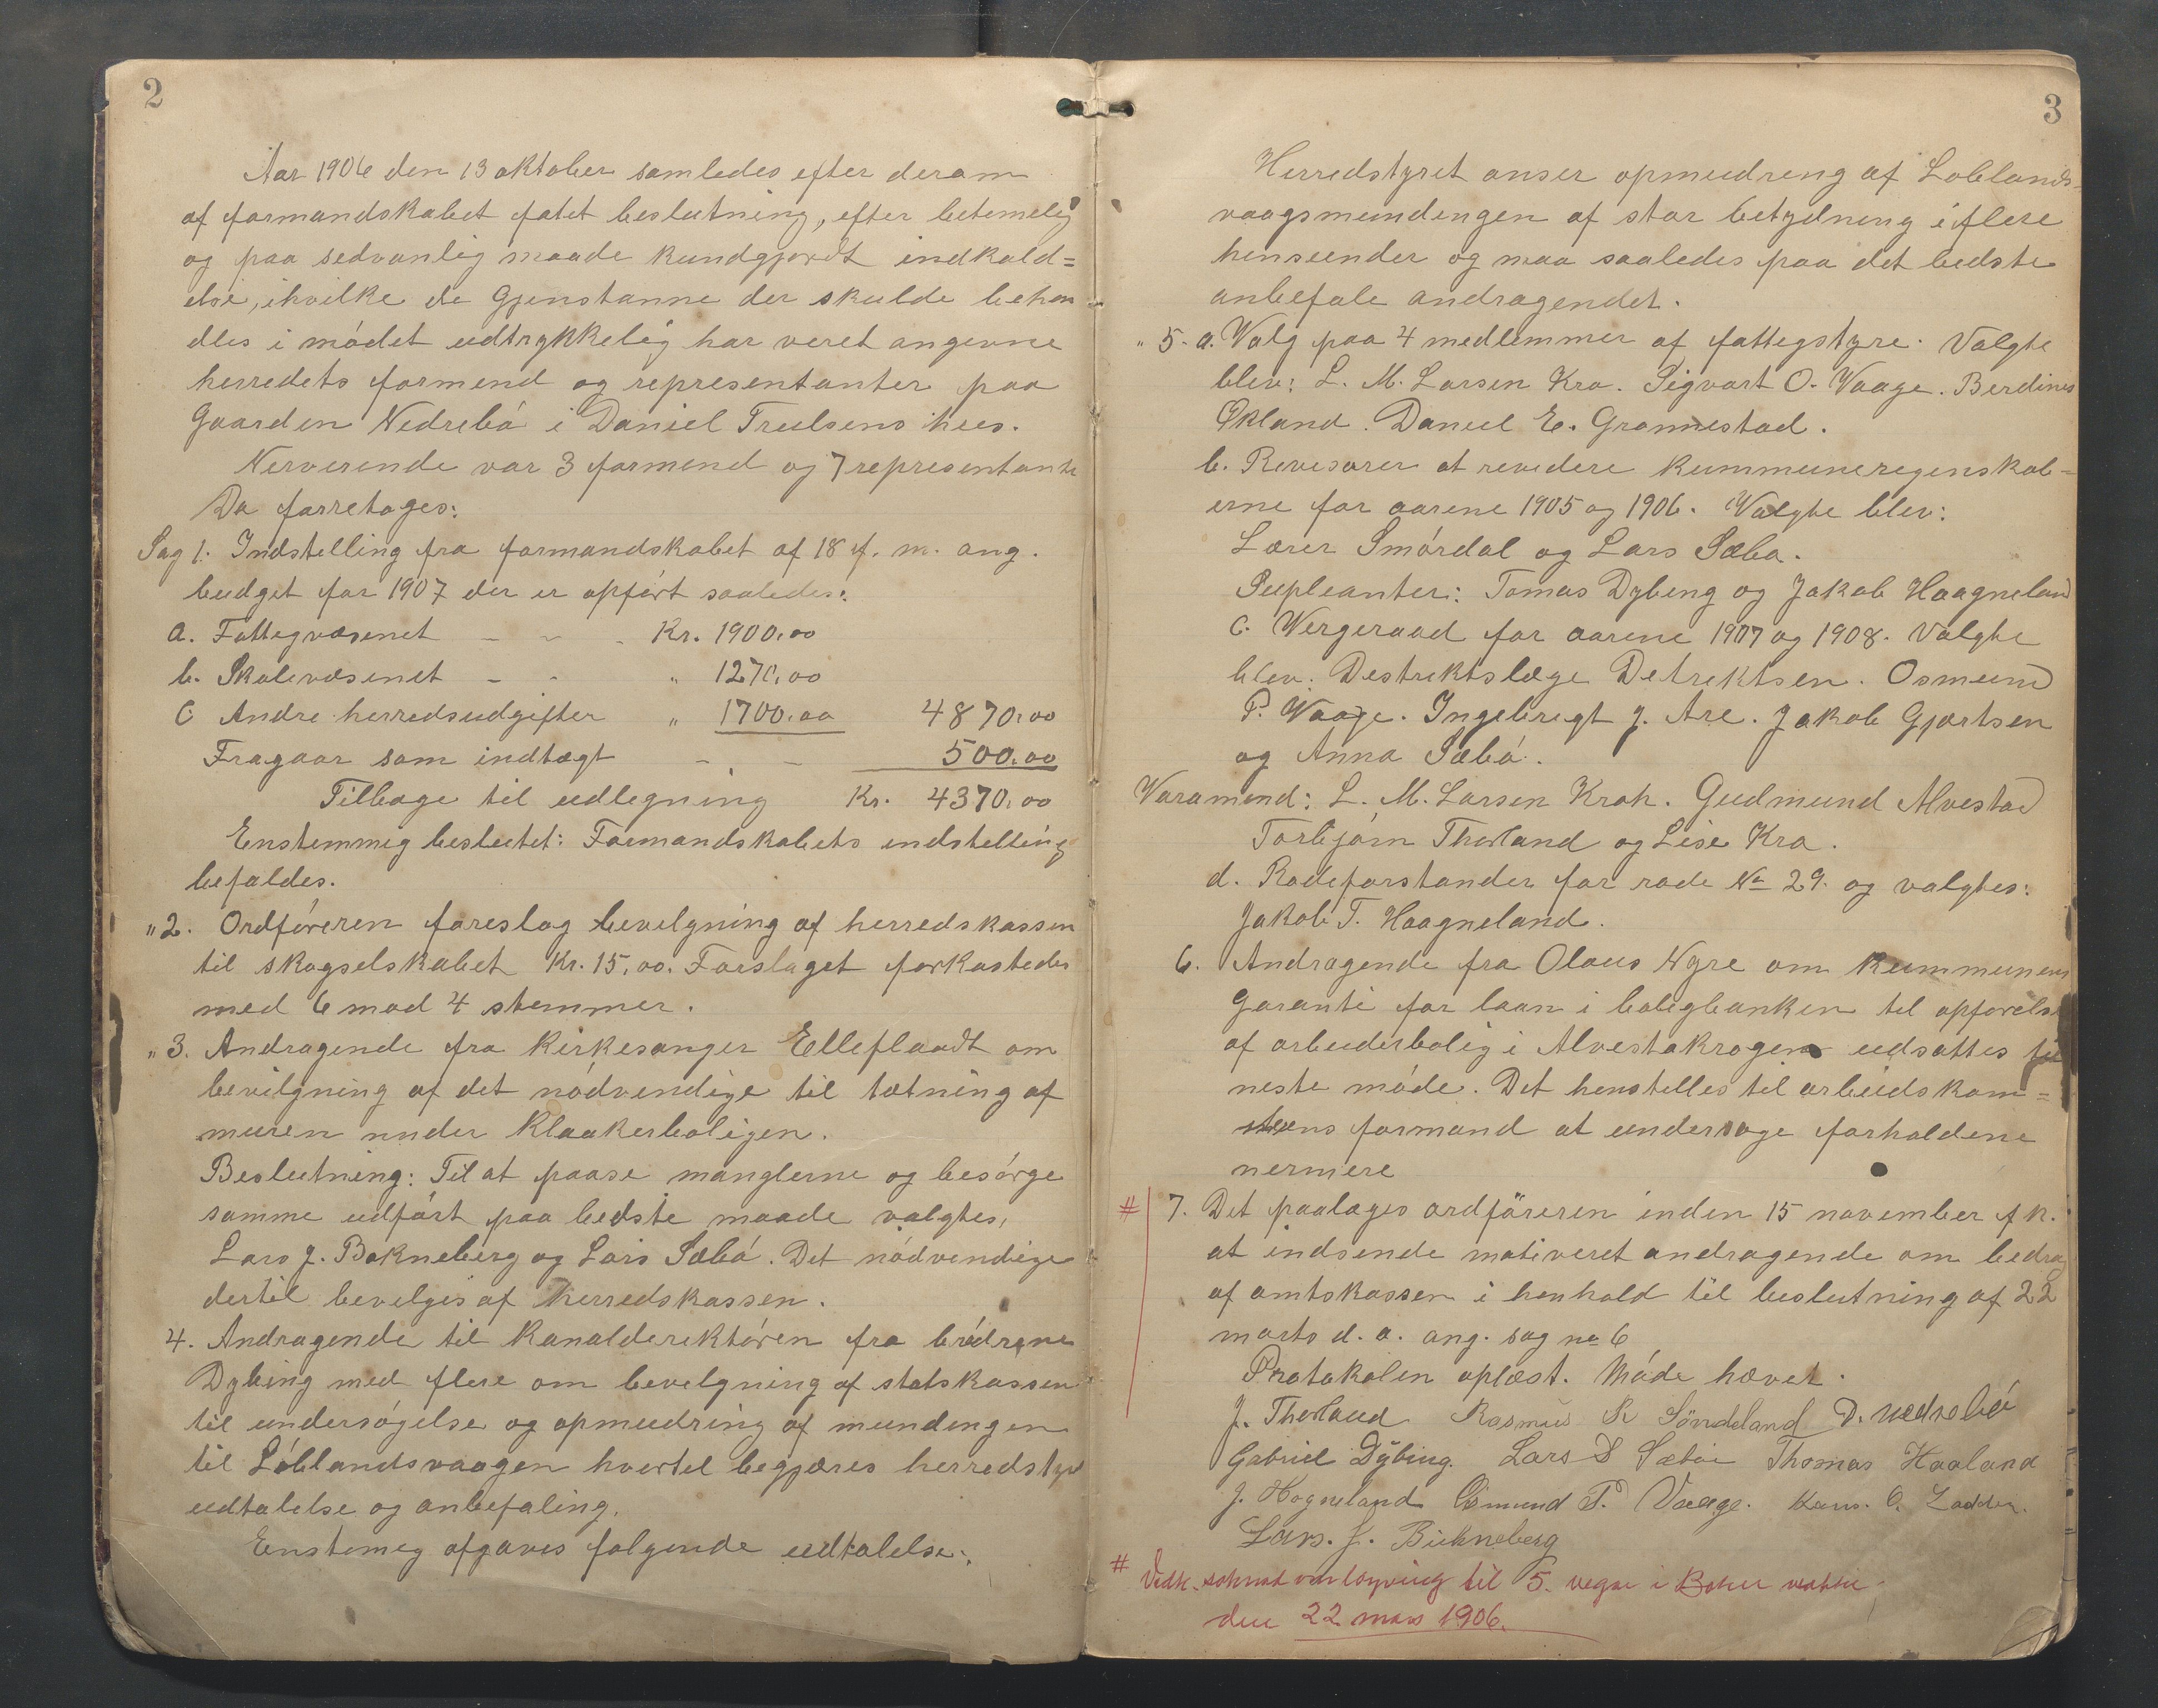 2
Aar 1906 den 13 oktober samledes efter derom
af formandskabet fatet beslutning, efter betemelig
og paa sedvanlig maade kundgjordt indkald=
else, ihvilke de Gjenstanne der skulde behan
dles i mödet udtrykkelig har veret angivne
herredets formend og representanter paa
Gaarden Nedrebö i Daniel Trulsens hus.
Nerverende var 3 formend og 7 representante
Da forretages:
Sag 1. Indstelling fra formandskabet af 18 f. m. ang.
budget for 1907 der er opfört saaledes:
a. Fattigvæsenet - - - Kr. 1900,00
b. Skolevæsenet - - " 1270,00
C Andre herredsudgifter " 1700,00 4870,00
Fragaar som indtægt - - 500,00
Tilbage til udlegning Kr. 4370,00
Enstemmig besluttet: Formandskabets indstelling
befaldes.
"2. Ordföreren foreslog bevelgning af herredskassen
til skogselskabet Kr. 15,00. Forslaget forkastedes
med 6 mod 4 stemmer.
"3. Andragende fra Kirkesanger Elleflaadt om
bevilgning af det nödvendige til tætning af
muren under Klaakerboligen.
Beslutning: Til at paase manglerne og besörge
samme udfört paa bedste maade valgtes,
Lars J. Bokneberg og Lars Sæbö. Det nödvendige
dertil bevelges af herredskassen.
4. Andragende til Kanalderektören fra brödrene
Dybing med flere om bevelgning af statskassen
til undersögelse og opmudring af mundingen
til Löblandsvaagen hvortel begjæres herredstyre
udtalelse og anbefaling.
Enstemig afgaves folgende udtalelse:
3
Herredstyret anser opmudreng af Loblands-
vaagsmundengen af stor betydneng i flere
henseender og maa saaledes paa det bedste
anbefale andragendet.
"5. a. Valg paa 4 medlemmer af fattegstyre. Valgte
blev: L. M. Larsen Kro. Sigvart O. Vaage. Berdines
Økland. Daniel E. Gronnestad.
b. Revesorer at revedere kummuneregenskab=
erne for aarene 1905 og 1906. Valgte blev:
Lærer Smördal og Lars Sæbø.
Supleanter: Tomas Dybeng og Jakob Haagneland
c. Vergeraad for aarene 1907 og 1908. Valgte
blev: Destriktslæge Detrektsen. Osmund
P. Vaage. Ingebregt J. Are. Jakob Gjertsen
og Anna Sæbö.
Varamend: L. M. Larsen Kroh. Gudmund Alvestad
Torbjörn Thorland og Lise Kro.
d. Rodeforstander for rode No 29. og valgtes:
Jakob T. Haagneland.
6. Andragende fra Olaus Nyre om Kummunens
Garanti for laan i boligbanken til opforelse
af arbeiderbolig i Alvestakrogen udsattes til
neste möde. Det henstelles til arbeidskom=
ens formand at undersoge forholdene
nermere
# 7. Det paalæges ordföreren inden 15 november f k.
at indsende motiveret andragende om bedrag
af amtskassen i henhold til beslutning af 22
marts d. a. ang. sag no 6
Protokolen oplæst. Möde hævet.
J. Thorland Rasmus R Söndeland D. Nedrebö
Gabriel Dybing. Lars D Sæbö Thomas Haaland
J. Hogneland Osmund P. Vaage.
Lars. J. Bukneberg
# Vedk. til 5. vegar i Bokn
den 22 mars 1906.